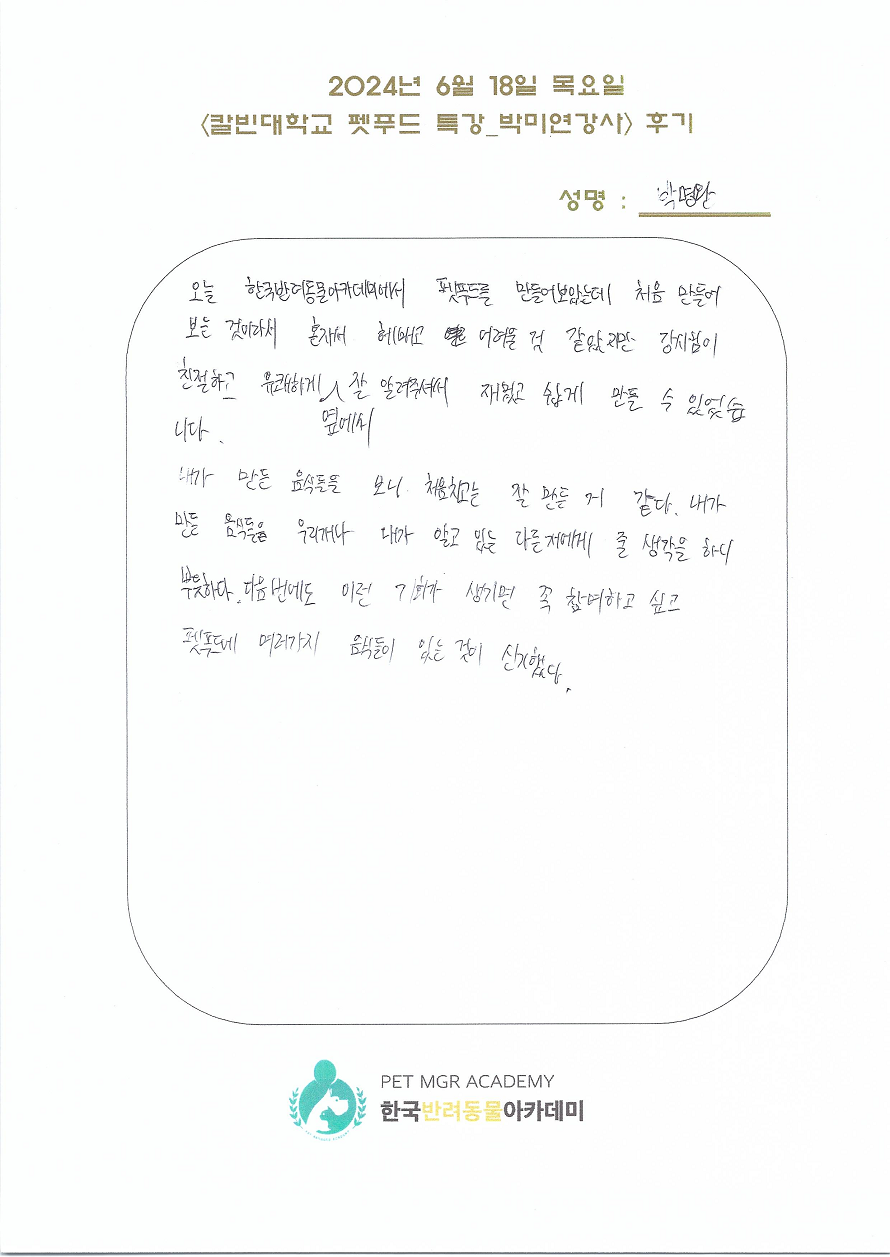 2024년 6월 18일 목요일
<칼빈대학교 펫푸드 특강_박미연강사> 후기
성명 :
오늘 한국반려동물아카데미에서 펫푸드를 만들어보았는데 처음 만들어
보는 것이라서 혼자서 헤매고 어려울 것 같았지만 강사님이
친절하고 유쾌하게 옆에서 잘 알려주셔서 재밌고 쉽게 만들 수 있었습
니다.
내가 만든 음식들을 보니 처음치고는 잘 만든 거 같다. 내가
만든 음식들을 우리개나 내가 알고 있는 다른 개에게 줄 생각을 하니
뿌듯하다. 다음번에도 이런 기회가 생기면 꼭 참여하고 싶고
펫푸드에 여러가지 음식들이 있는 것이 신기했다.
PET MGR ACADEMY
한국반려동물아카데미